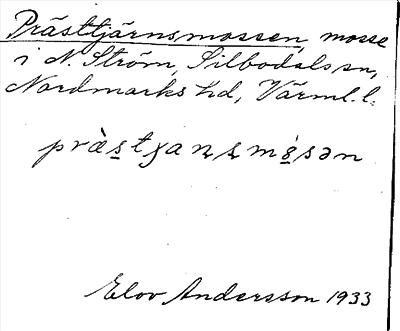 Prästtjärnsmossen, mosse
i N. Ström, Silbodals sn,
Nordmarks hd, Värml. l.
præ̀stjaɳʂmɷ̀sən
Elov Andersson 1933